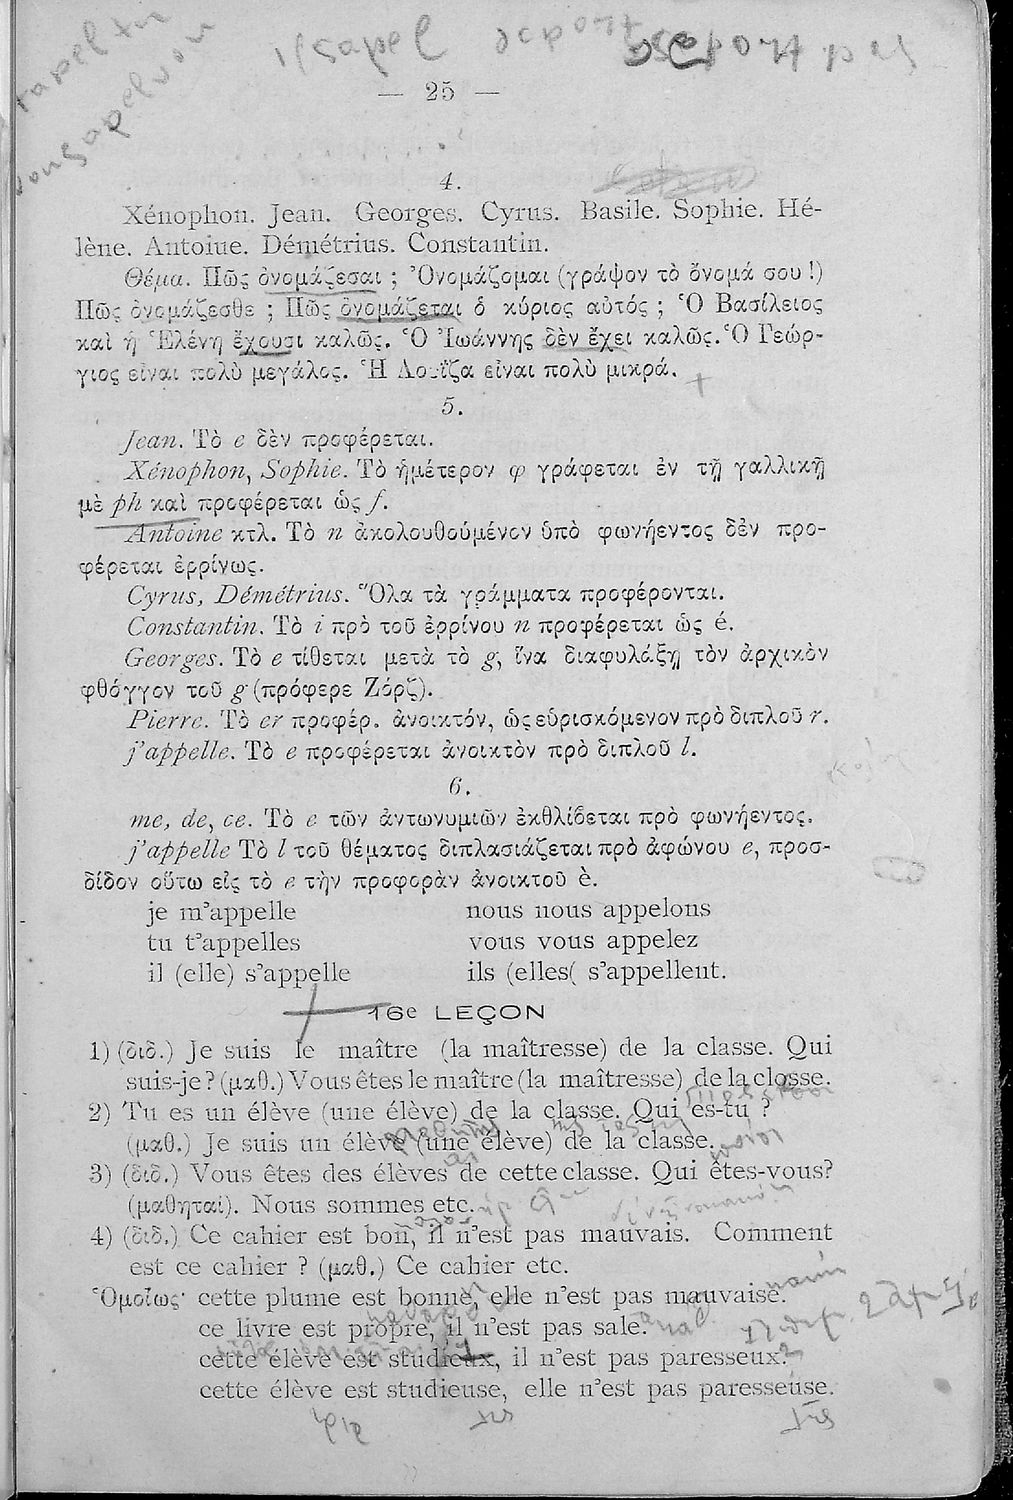 — 25 —
4.
Xénophon. Jean. Georges. Cyrus. Basile. Sophie. Hé-
lène. Antoine. Démétrius. Constantin.
Θέμα. Πῶς ὀνομάζεσαι ; Ὀνομάζομαι (γράψον τὸ ὄνομά σου !)
Πῶς ὀνομάζεσθε ; Πῶς ὀνομάζεται ὁ κύριος αὐτός ; Ὁ Βασίλειος
καὶ ἡ Ἑλένη ἔχουσι καλῶς. Ὁ Ἰωάννης δὲν ἔχει καλῶς. Ὁ Γεώρ-
γιος εἶναι πολὺ μεγάλος. Ἡ Λουΐζα εἶναι πολὺ μικρά.
5.
Jean. Τὸ e δὲν προφέρεται.
Xénophon, Sophie. Τὸ ἡμέτερον φ γράφεται ἐν τῇ γαλλικῇ
μὲ ph καὶ προφέρεται ὡς f.
Antoine κτλ. Τὸ n ἀκολουθούμένον ὑπὸ φωνήεντος δὲν προ-
φέρεται ἐρρίνως.
Cyrus, Démétrius. Ὅλα τὰ γράμματα προφέρονται.
Constantin. Τὸ i πρὸ τοῦ ἐρρίνου n προφέρεται ὡς é.
Georges. Τὸ e τίθεται μετὰ τὸ g, ἵνα διαφυλάξῃ τὸν ἀρχικὸν
φθόγγον τοῦ g (πρόφερε Ζόρζ).
Pierre. Τὸ er προφέρ. ἀνοικτόν, ὡς εὑρισκόμενον πρὸ διπλοῦ r.
j'appelle. Τὸ e προφέρεται ἀνοικτὸν πρὸ διπλοῦ l.
6.
me, de, ce. Τὸ e τῶν ἀντωνυμιῶν ἐκθλίβεται πρὸ φωνήεντος.
j'appelle Τὸ l τοῦ θέματος διπλασιάζεται πρὸ ἀφώνου e, προσ-
δίδον οὕτω εἰς τὸ e τὴν προφορὰν ἀνοικτοῦ è.
je m'appelle nous nous appelons
tu t'appelles vous vous appelez
il (elle) s'appelle ils (elles( s'appellent.
16e LEÇON
1) (διδ.) Je suis le maître (la maîtresse) de la classe. Qui
suis-je ? (μαθ.) Vous êtes le maître (la maîtresse) de la closse.
2) Tu es un élève (une élève) de la classe. Qui es-tu ?
(μαθ.) Je suis un élève (une élève) de la classe.
3) (διδ.) Vous êtes des élèves de cette classe. Qui êtes-vous?
(μαθηταί). Nous sommes etc.
4) (διδ.) Ce cahier est bon, il n'est pas mauvais. Comment
est ce cahier ? (μαθ.) Ce cahier etc.
Ὁμοίως· cette plume est bonne, elle n'est pas mauvaise.
ce livre est propre, il n'est pas sale.
cette élève est studieux, il n'est pas paresseux.
cette élève est studieuse, elle n'est pas paresseuse.